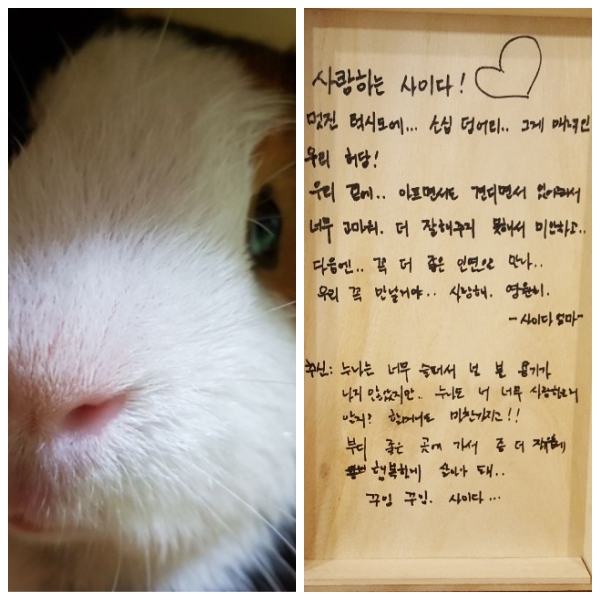 사랑하는 사이다!
멋진 턱시도에... 소심 덩어리.. 그게 매력인
우리 허당!
우리 곁에.. 아프면서도 견디면서 있어줘서
너무 고마워. 더 잘해주지 못해서 미안하고..
다음엔.. 꼭 더 좋은 인연으로 만나..
우리 꼭 만날거야.. 사랑해. 영원히.
-사이다 엄마-
추신: 누나는 너무 슬퍼서 널 볼 용기가
나지 않았지만.. 누나도 너 너무 사랑하는거
알지? 할머니도 마찬가지고!!
부디 좋은 곳에 가서 좀 더
행복하게 살아가 돼..
꾸잉 꾸잉. 사이다...